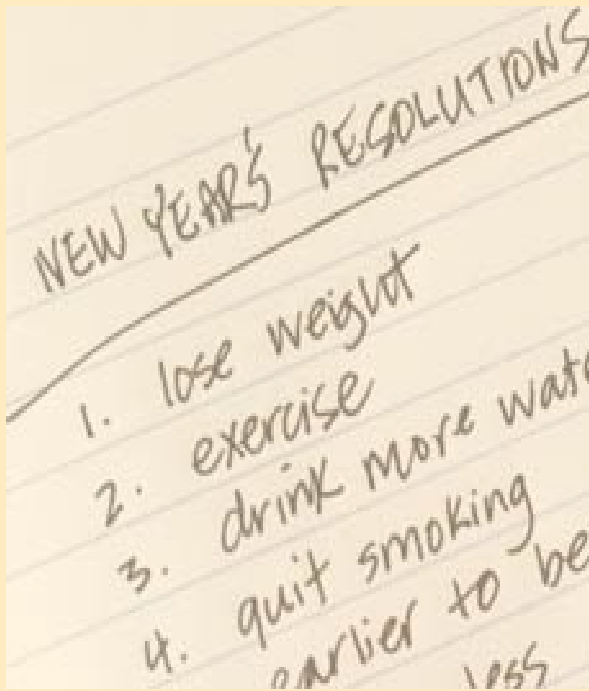 NEW YEAR'S RESOLUTIONS
1. lose weight
2. exercise
3. drink more wate
4. quit smoking
earlier to be
less